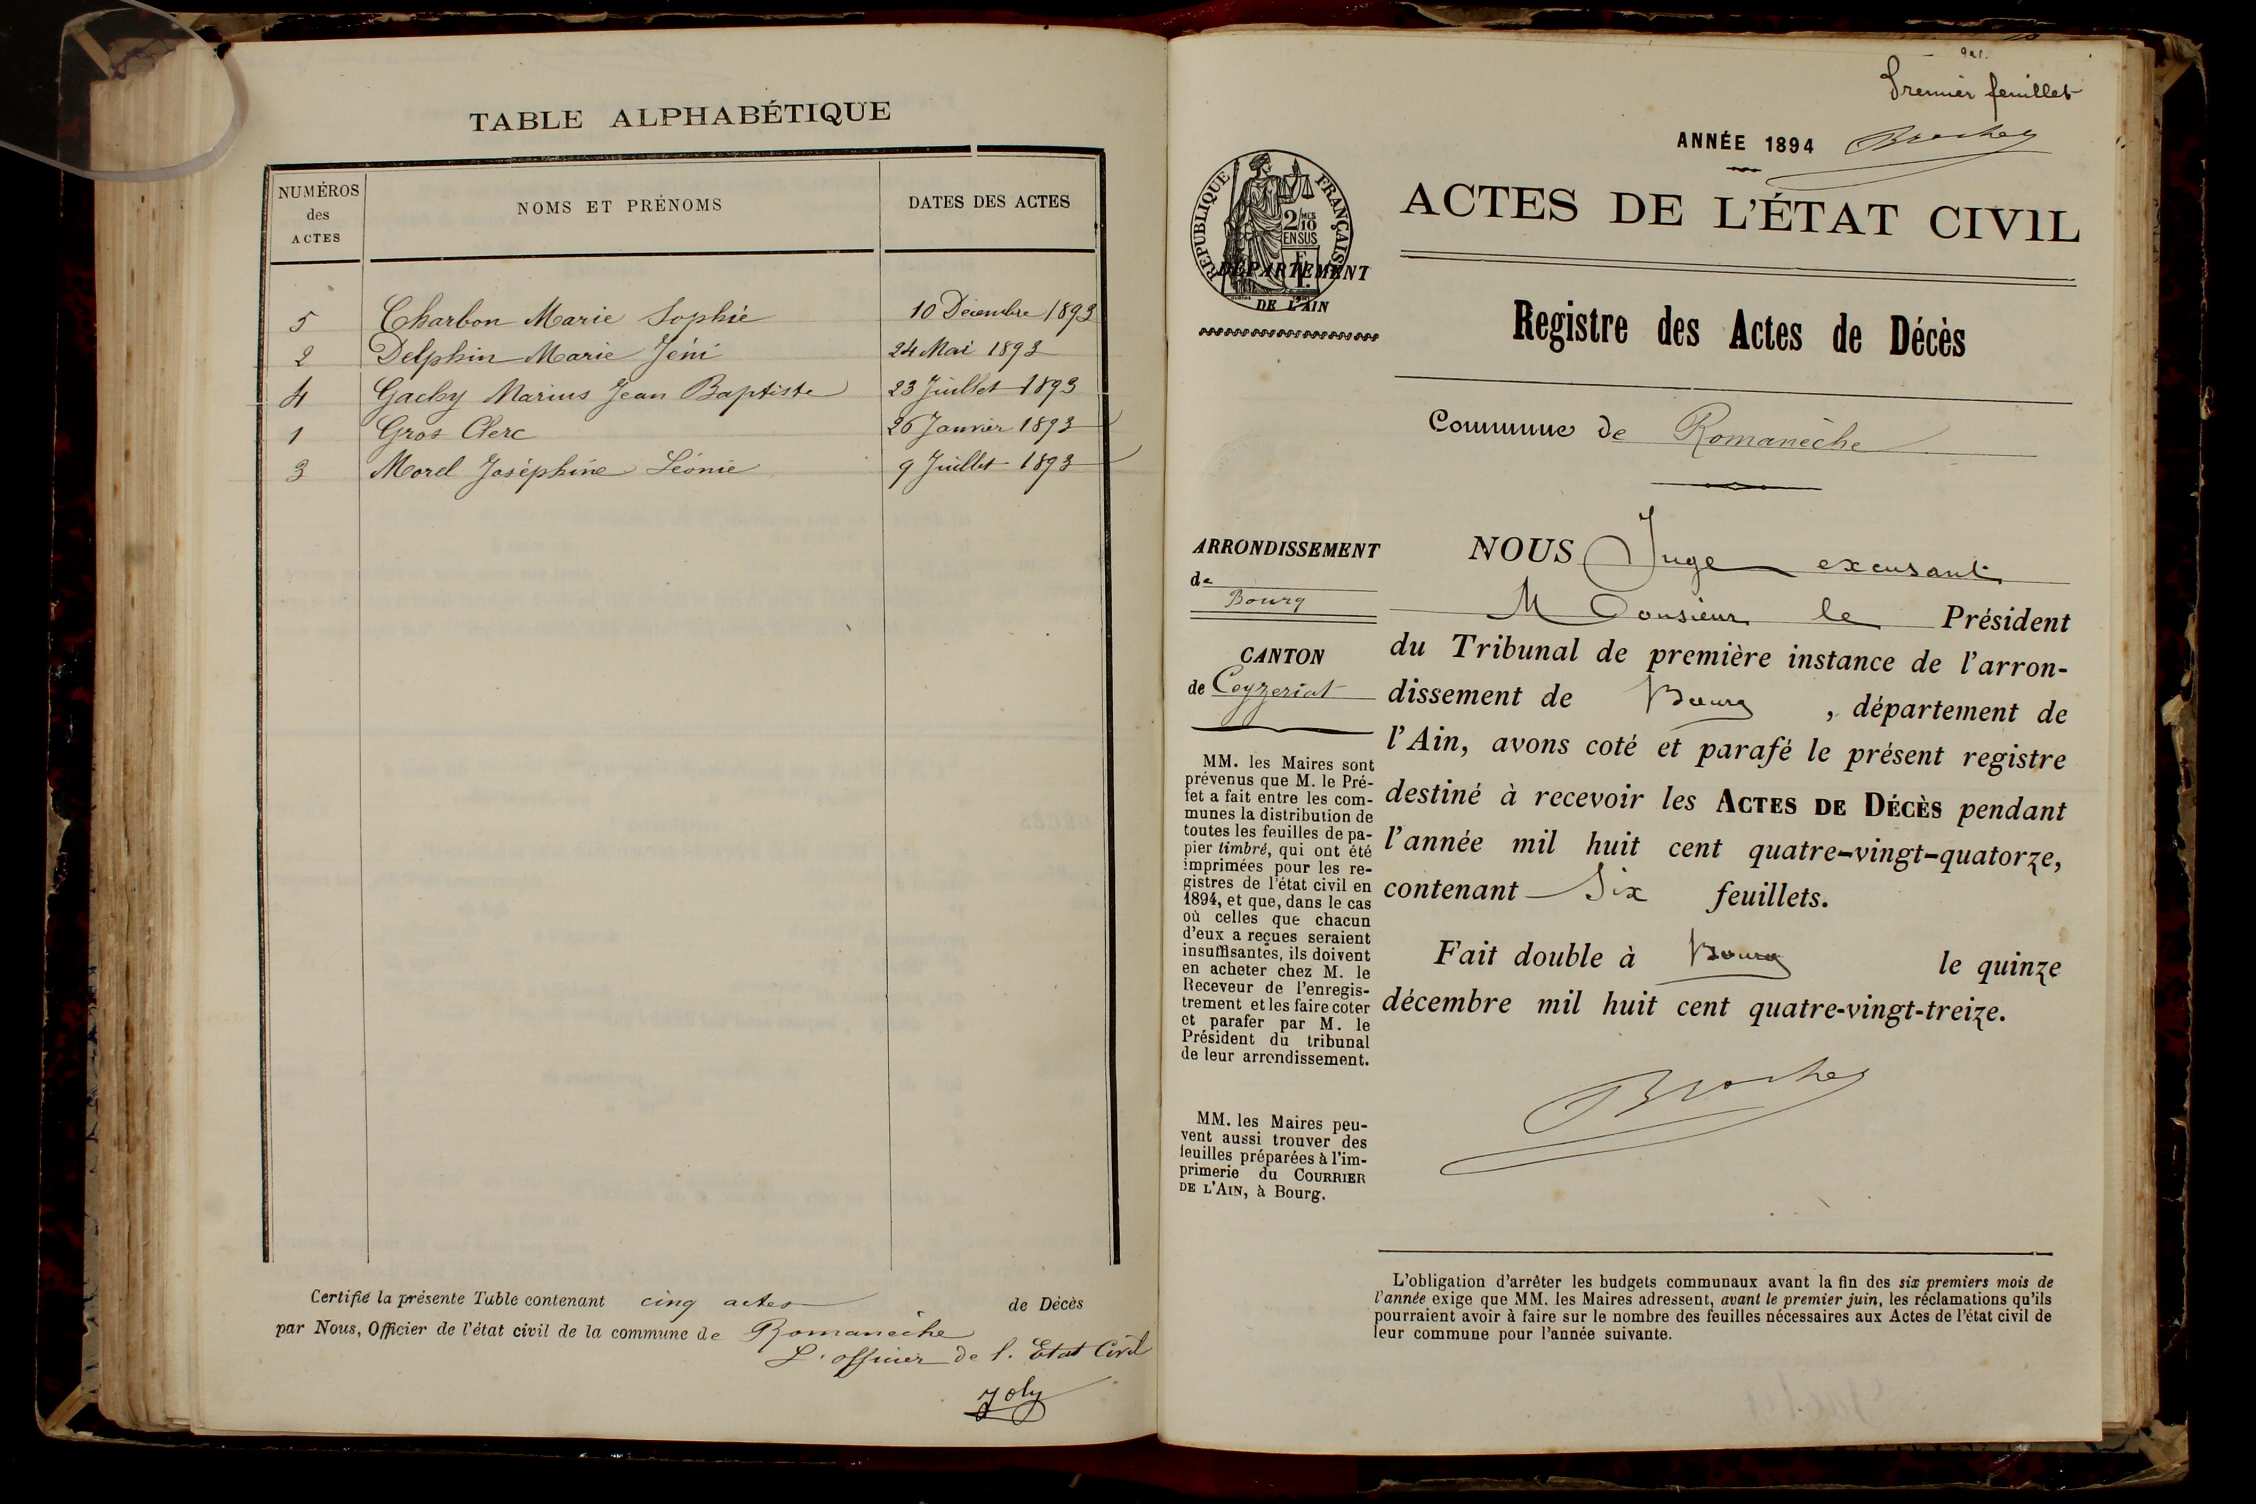 TABLE ALPHABÉTIQUE
NUMÉROS
des
ACTES
NOMS ET PRÉNOMS
DATES DES ACTES
5 Charbon Marie Sophie 10 Décembre 1893
2 Delphin Marie Jéni 24 Mai 1893
4 Gachy Marius Jean Baptiste 23 Juillet 1893
1 Gros Clerc 26 Janvier 1893
3 Morel Joséphine Léonie 9 Juillet 1893
Certifié la présente Table contenant cinq actes de Décès
par Nous, Officier de l'état civil de la commune de Romanèche
L'officier de l'Etat Civil
Joly
Premier feuillet
ANNÉE 1894
RÉPUBLIQUE FRANÇAISE
2/10
EN SUS
DÉPARTEMENT
DE L'AIN
ACTES DE L'ÉTAT CIVIL
Registre des Actes de Décès
Commune de Romanèche
ARRONDISSEMENT
de
Bourg
CANTON
de Ceyzeriat
MM. les Maires sont
prévenus que M. le Pré-
fet a fait entre les com-
munes la distribution de
toutes les feuilles de pa-
pier timbré, qui ont été
imprimées pour les re-
gistres de l'état civil en
1894, et que, dans le cas
où celles que chacun
d'eux a reçues seraient
insuffisantes, ils doivent
en acheter chez M. le
Receveur de l'enregis-
trement et les faire coter
et parafer par M. le
Président du tribunal
de leur arrondissement.
MM. les Maires peu-
vent aussi trouver des
feuilles préparées à l'im-
primerie du COURRIER
DE L'AIN, à Bourg.
NOUS Juge excusant
Monsieur le Président
du Tribunal de première instance de l'arron-
dissement de Bourg, département de
l'Ain, avons coté et parafé le présent registre
destiné à recevoir les ACTES DE DÉCÈS pendant
l'année mil huit cent quatre-vingt-quatorze,
contenant Six feuillets.
Fait double à Bourg le quinze
décembre mil huit cent quatre-vingt-treize.
L'obligation d'arrêter les budgets communaux avant la fin des six premiers mois de
l'année exige que MM. les Maires adressent, avant le premier juin, les réclamations qu'ils
pourraient avoir à faire sur le nombre des feuilles nécessaires aux Actes de l'état civil de
leur commune pour l'année suivante.